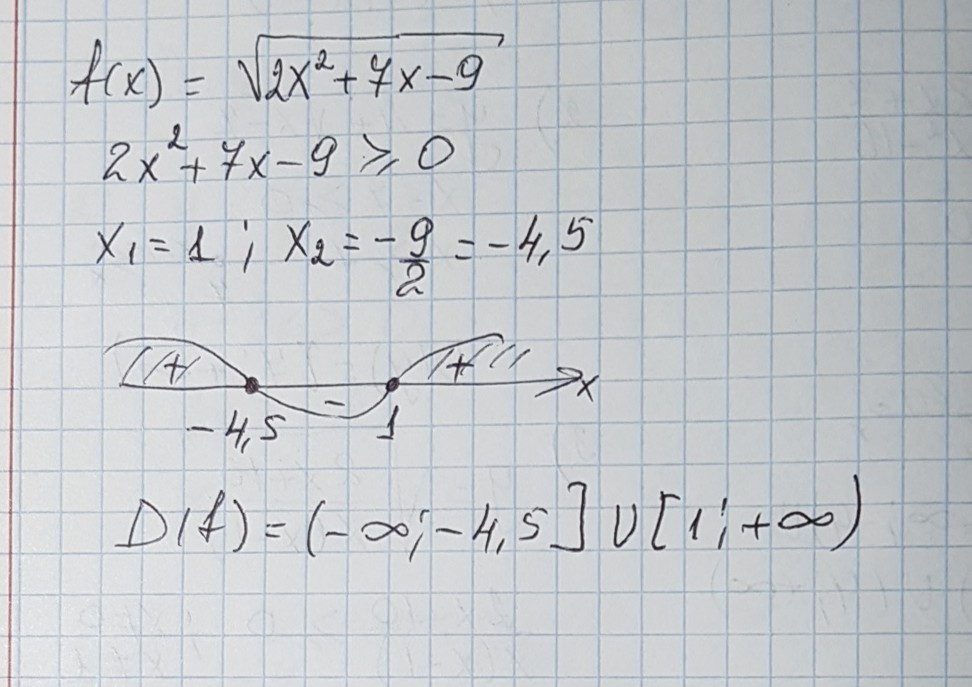 f(x) = √(2x²+7x−9)
2x²+7x−9 ⩾ 0
x₁ = 1 ; x₂ = −9/2 = −4,5
+ − + x
−4,5 1
D(f) = (−∞;−4,5] ∪ [1;+∞)